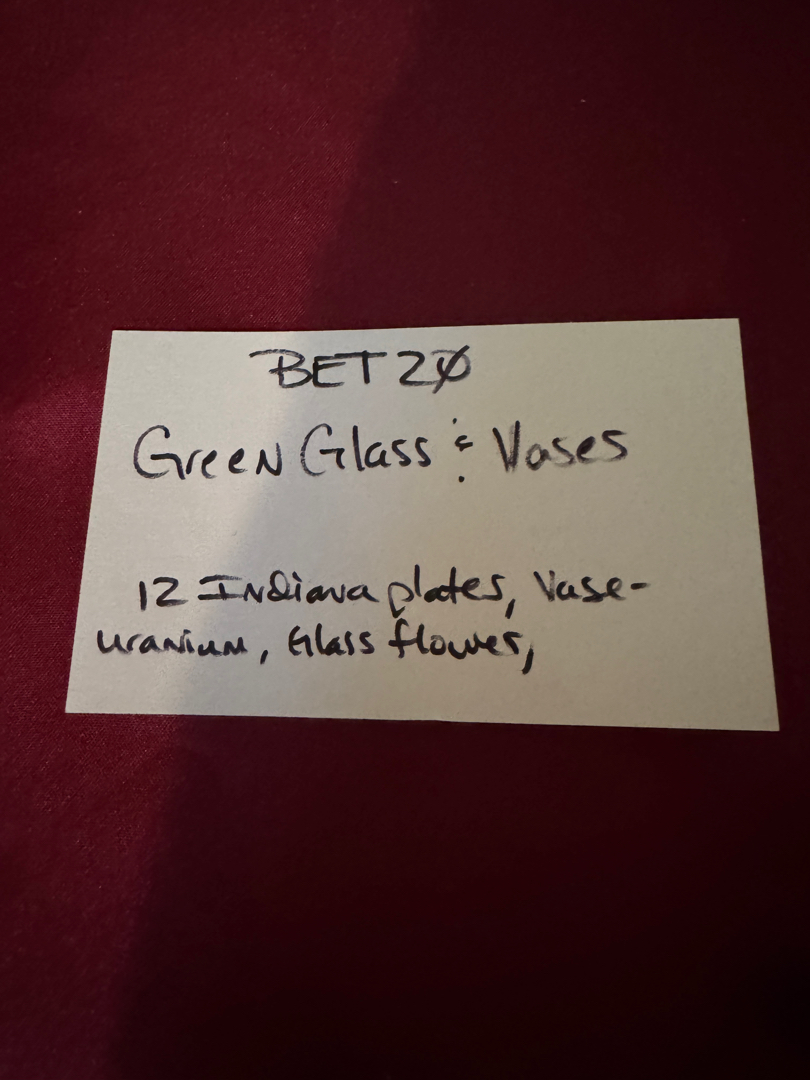 BET20
Green Glass & Vases
12 Indiana plates, Vase-
uranium, Glass flower,